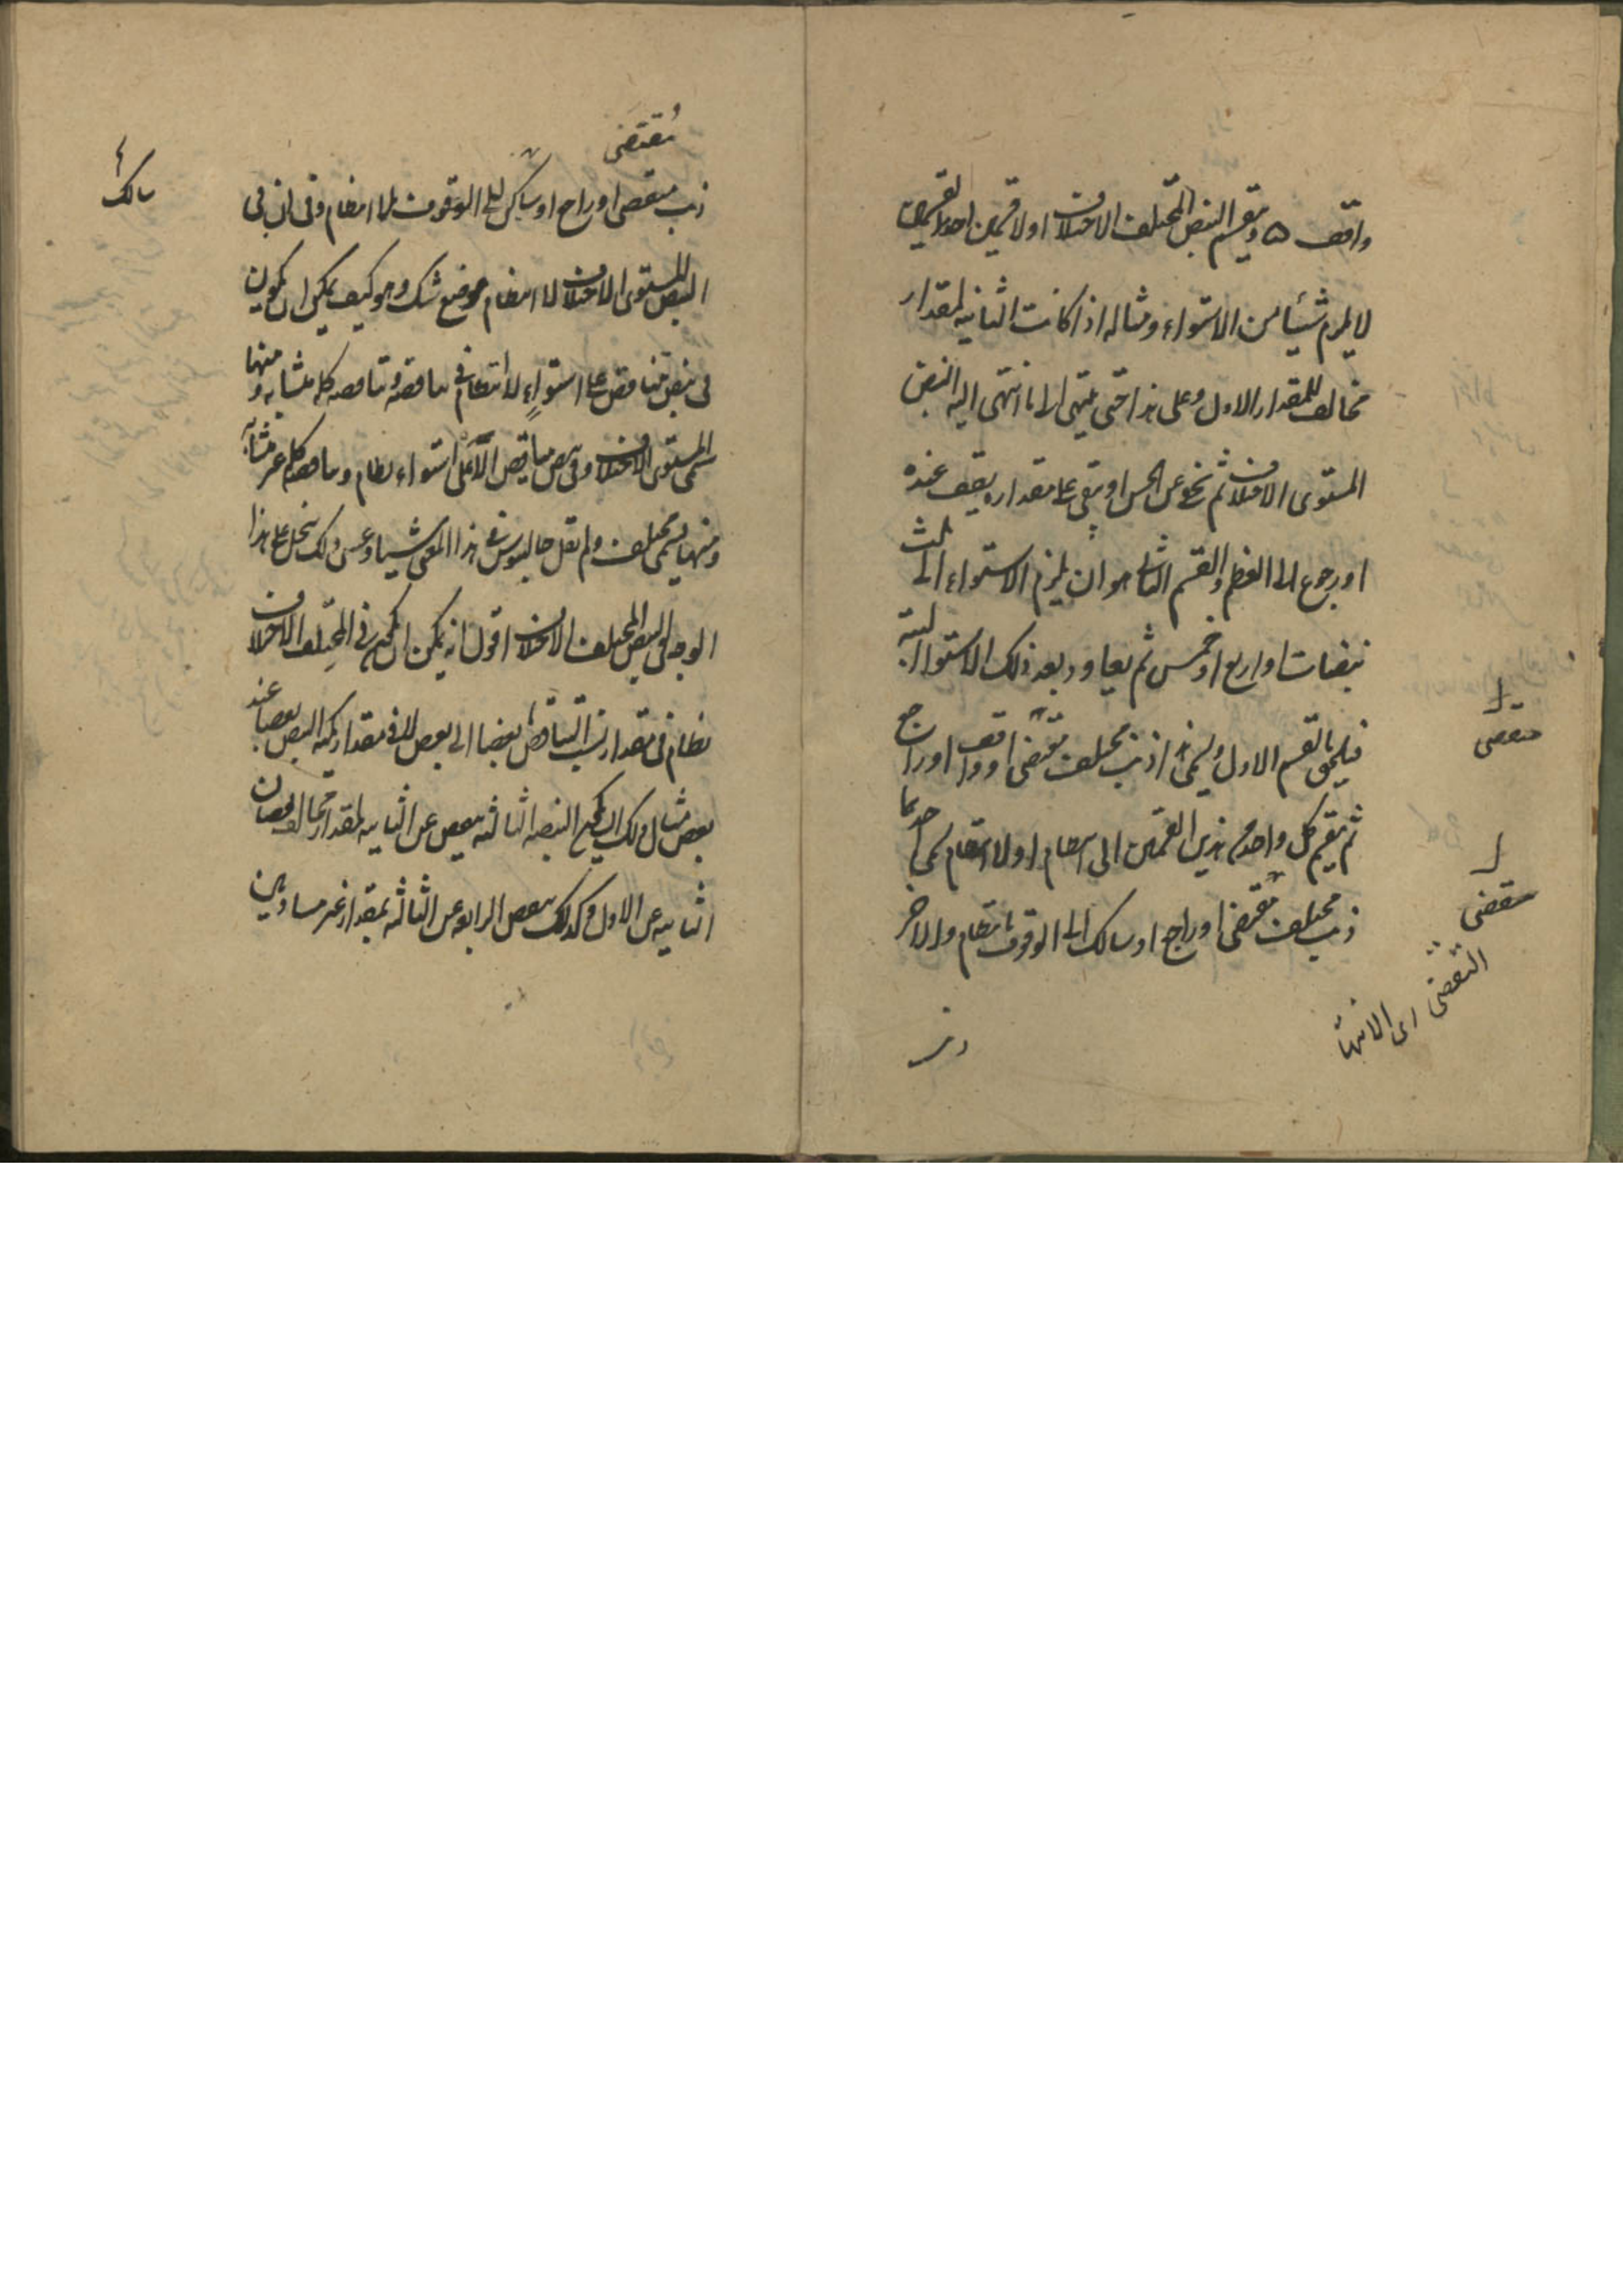 واقف ٥ وينقسم النبض المختلف الاختلاف اولا قسمين احد القسمين
لا يلزم شيئا من الاستواء ومثاله اذا كانت الثانيه لمقدار
مخالف للمقدار الاول وعلى هذا حتى ينتهى الا ما انتهى اليه النبض
المستوى الاختلاف ثم عن الحس او يبقى على مقدار يقف عنده
او رجوع الى العظم والقسم الثانى هو ان يلزم الاستواء الى ثلث
نبضات او اربع او خمس ثم يعاود بعد ذلك الاستواء البتة
فيلحق بالقسم الاول ويسمى هذا ذنب مختلف متقضى او واقف او راجع
ثم ينقسم كل واحد من هذين القسمين الى انتظام او لا انتظام يسمى احدهما
ذنب مختلف متقضى او راجع او سالك الى الوقوف بانتظام والاخر
ذنب
متقضى
متقضى
التقضى اى الانتهاء
متقضى
ذنب متقضى او راجع او سالك الى الوقوف بلا انتظام وفى ان فى
النبض المستوى الاختلاف لا انتظام موضع شك وهو كيف يمكن ان يكون
فى نبض متناقص على استواء لا انتظام فى تناقصه وتناقصه كله متشابه ومنها
سمى المستوى الاختلاف وفى نبض متناقص لا على استواء نظام وتناقصه كله غير متشابه
ومنها يسمى مختلف ولم يقل جالينوس فى هذا المعنى شيئا وعسى ذلك ينحل على هذا
الوجه فى النبض المختلف الاختلاف اقول انه يمكن ان يكون فى المختلف الاختلاف
نظام فى مقدار نسب التناقص بعضها الى بعض لا فى مقدار كمية النبض بعضها عند
بعض مثال ذلك ان يكون النبضه الثالثه ينقص عن الثانيه لمقدار مخالف لنقصان
الثانيه عن الاولى وكذلك ينقص الرابعه عن الثالثه بمقدار غير مساو لمن
سالك